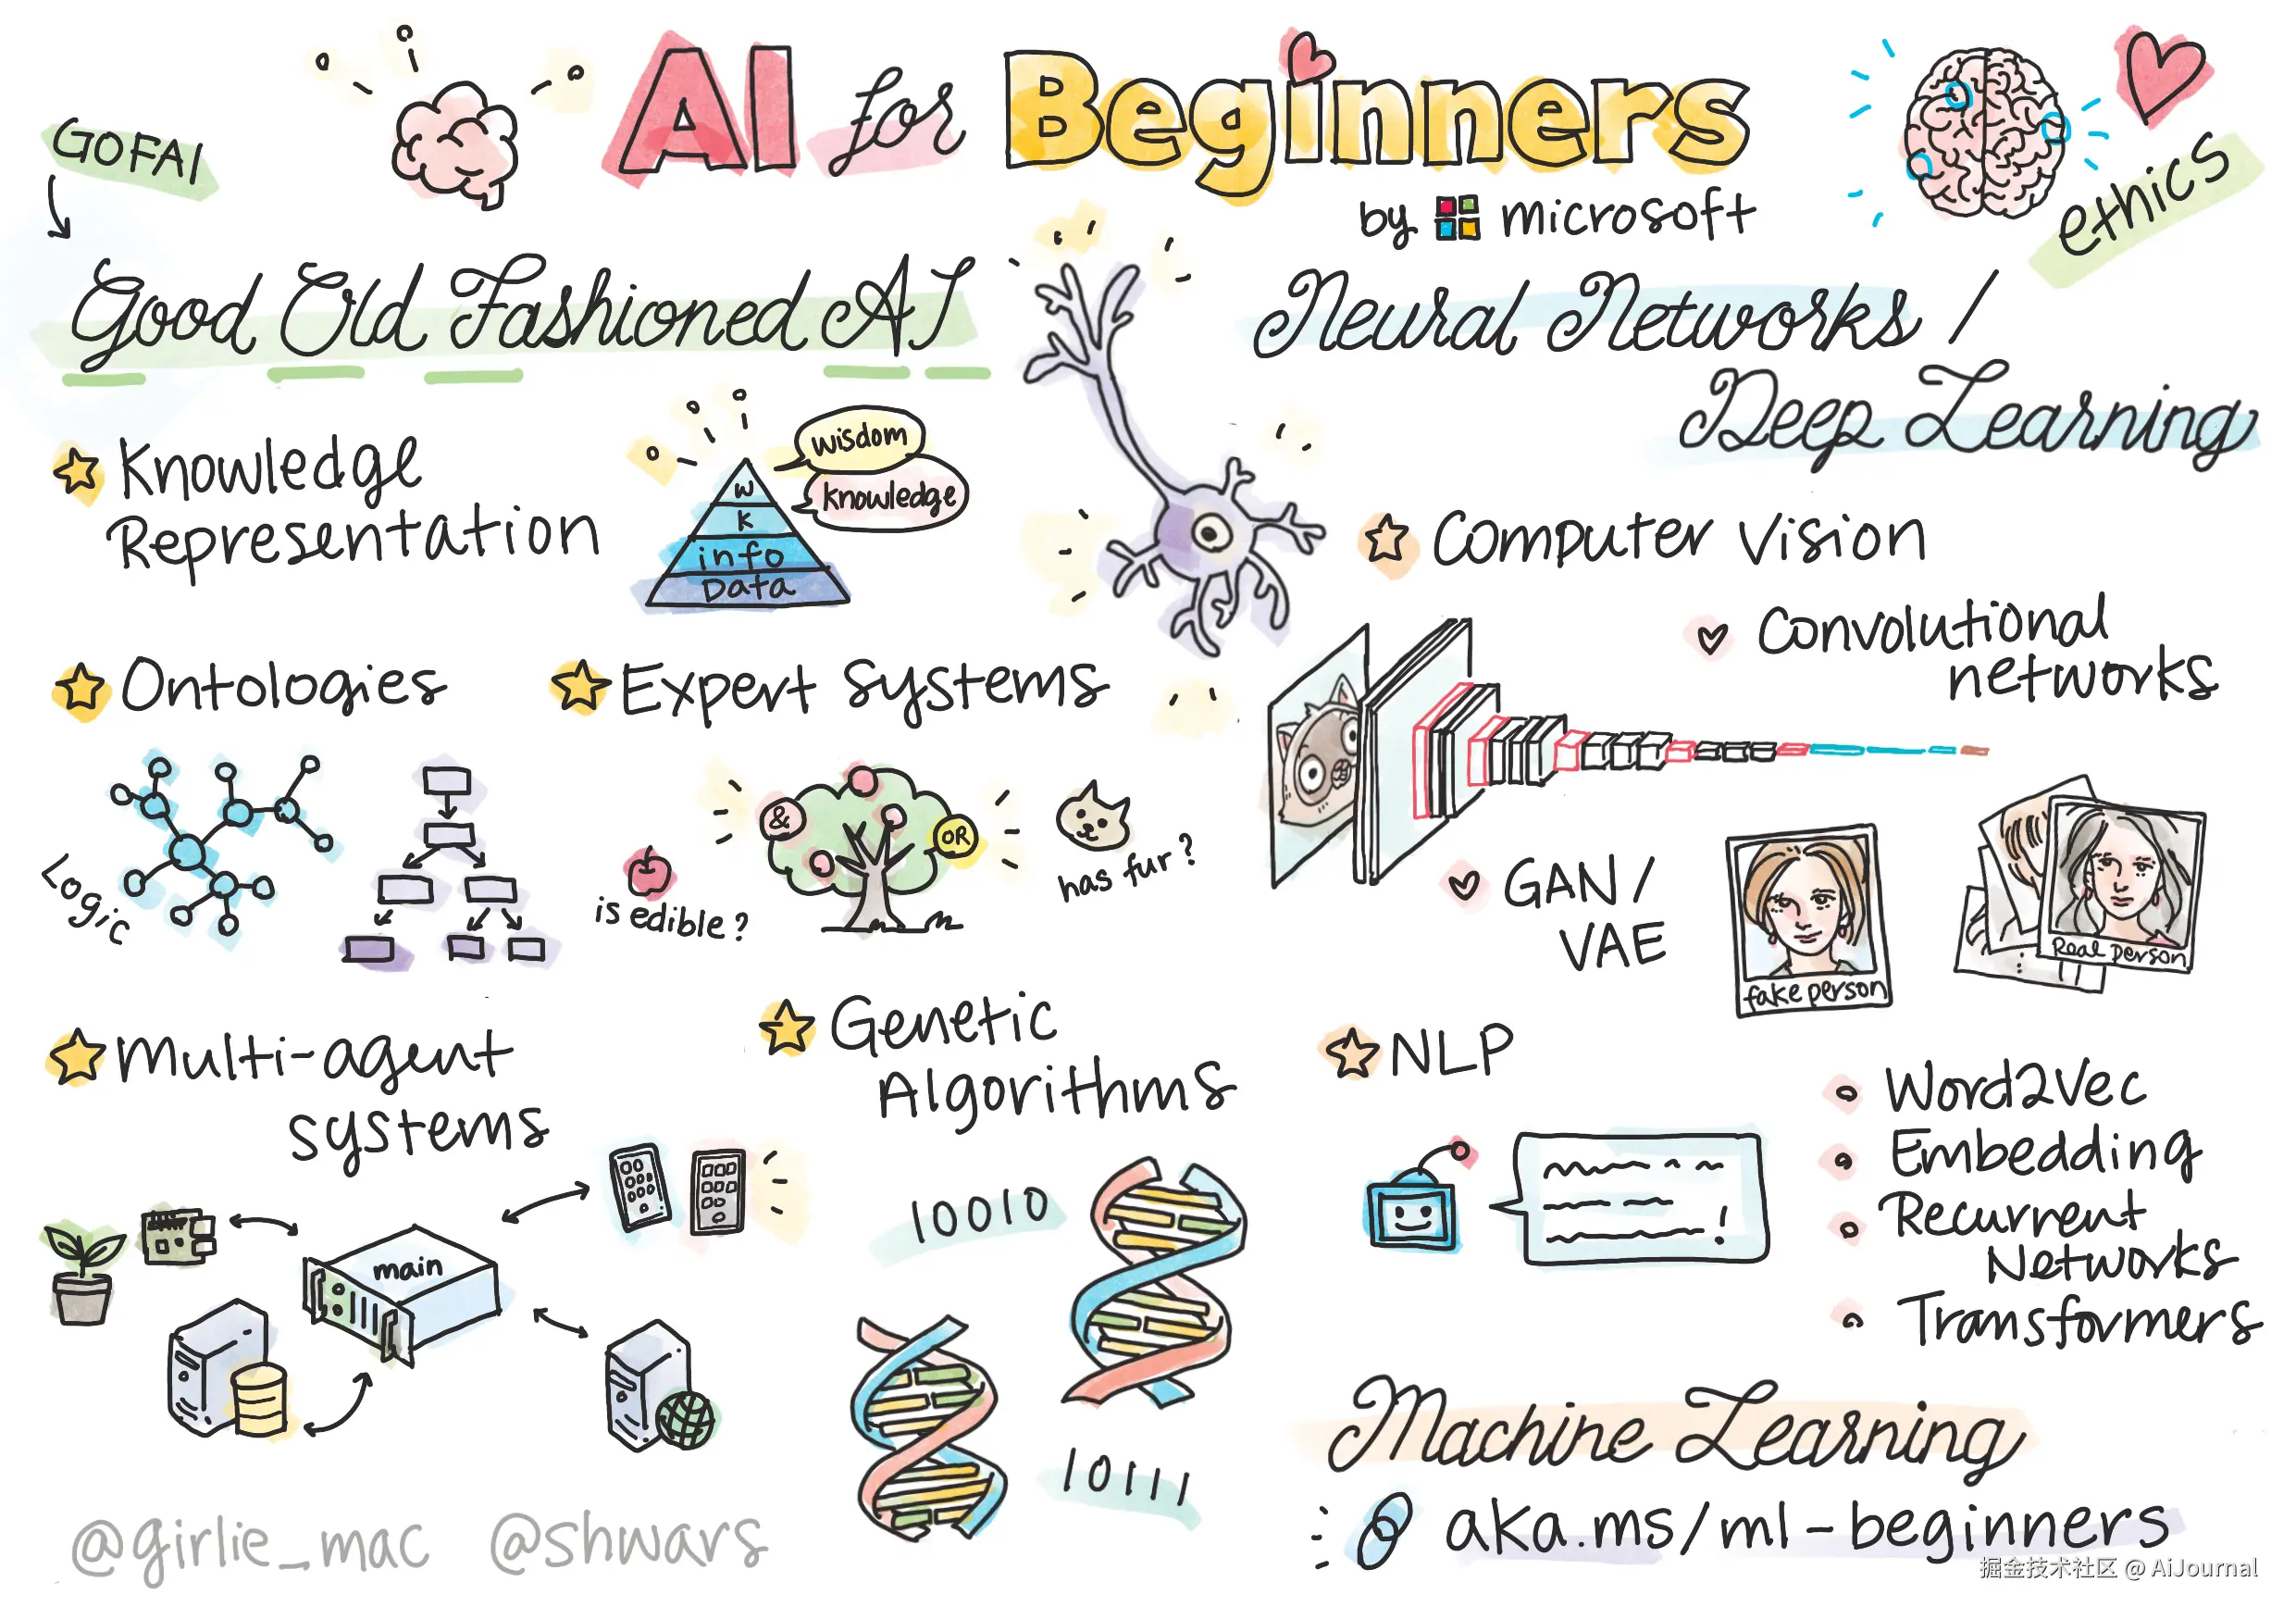 AI for Beginners
by microsoft
GOFAI
ethics
Good Old Fashioned AI
Knowledge
Representation
wisdom
knowledge
W
K
info
Data
Ontologies
Expert systems
Logic
&
OR
is edible?
has fur?
Multi-agent
systems
main
Genetic
Algorithms
10010
10111
Neural Networks /
Deep Learning
Computer Vision
Convolutional
networks
GAN /
VAE
fake person
Real person
NLP
Word2Vec
Embedding
Recurrent
Networks
Transformers
Machine Learning
aka.ms/ml-beginners
@girlie_mac @shwars
掘金技术社区 @ AiJournal